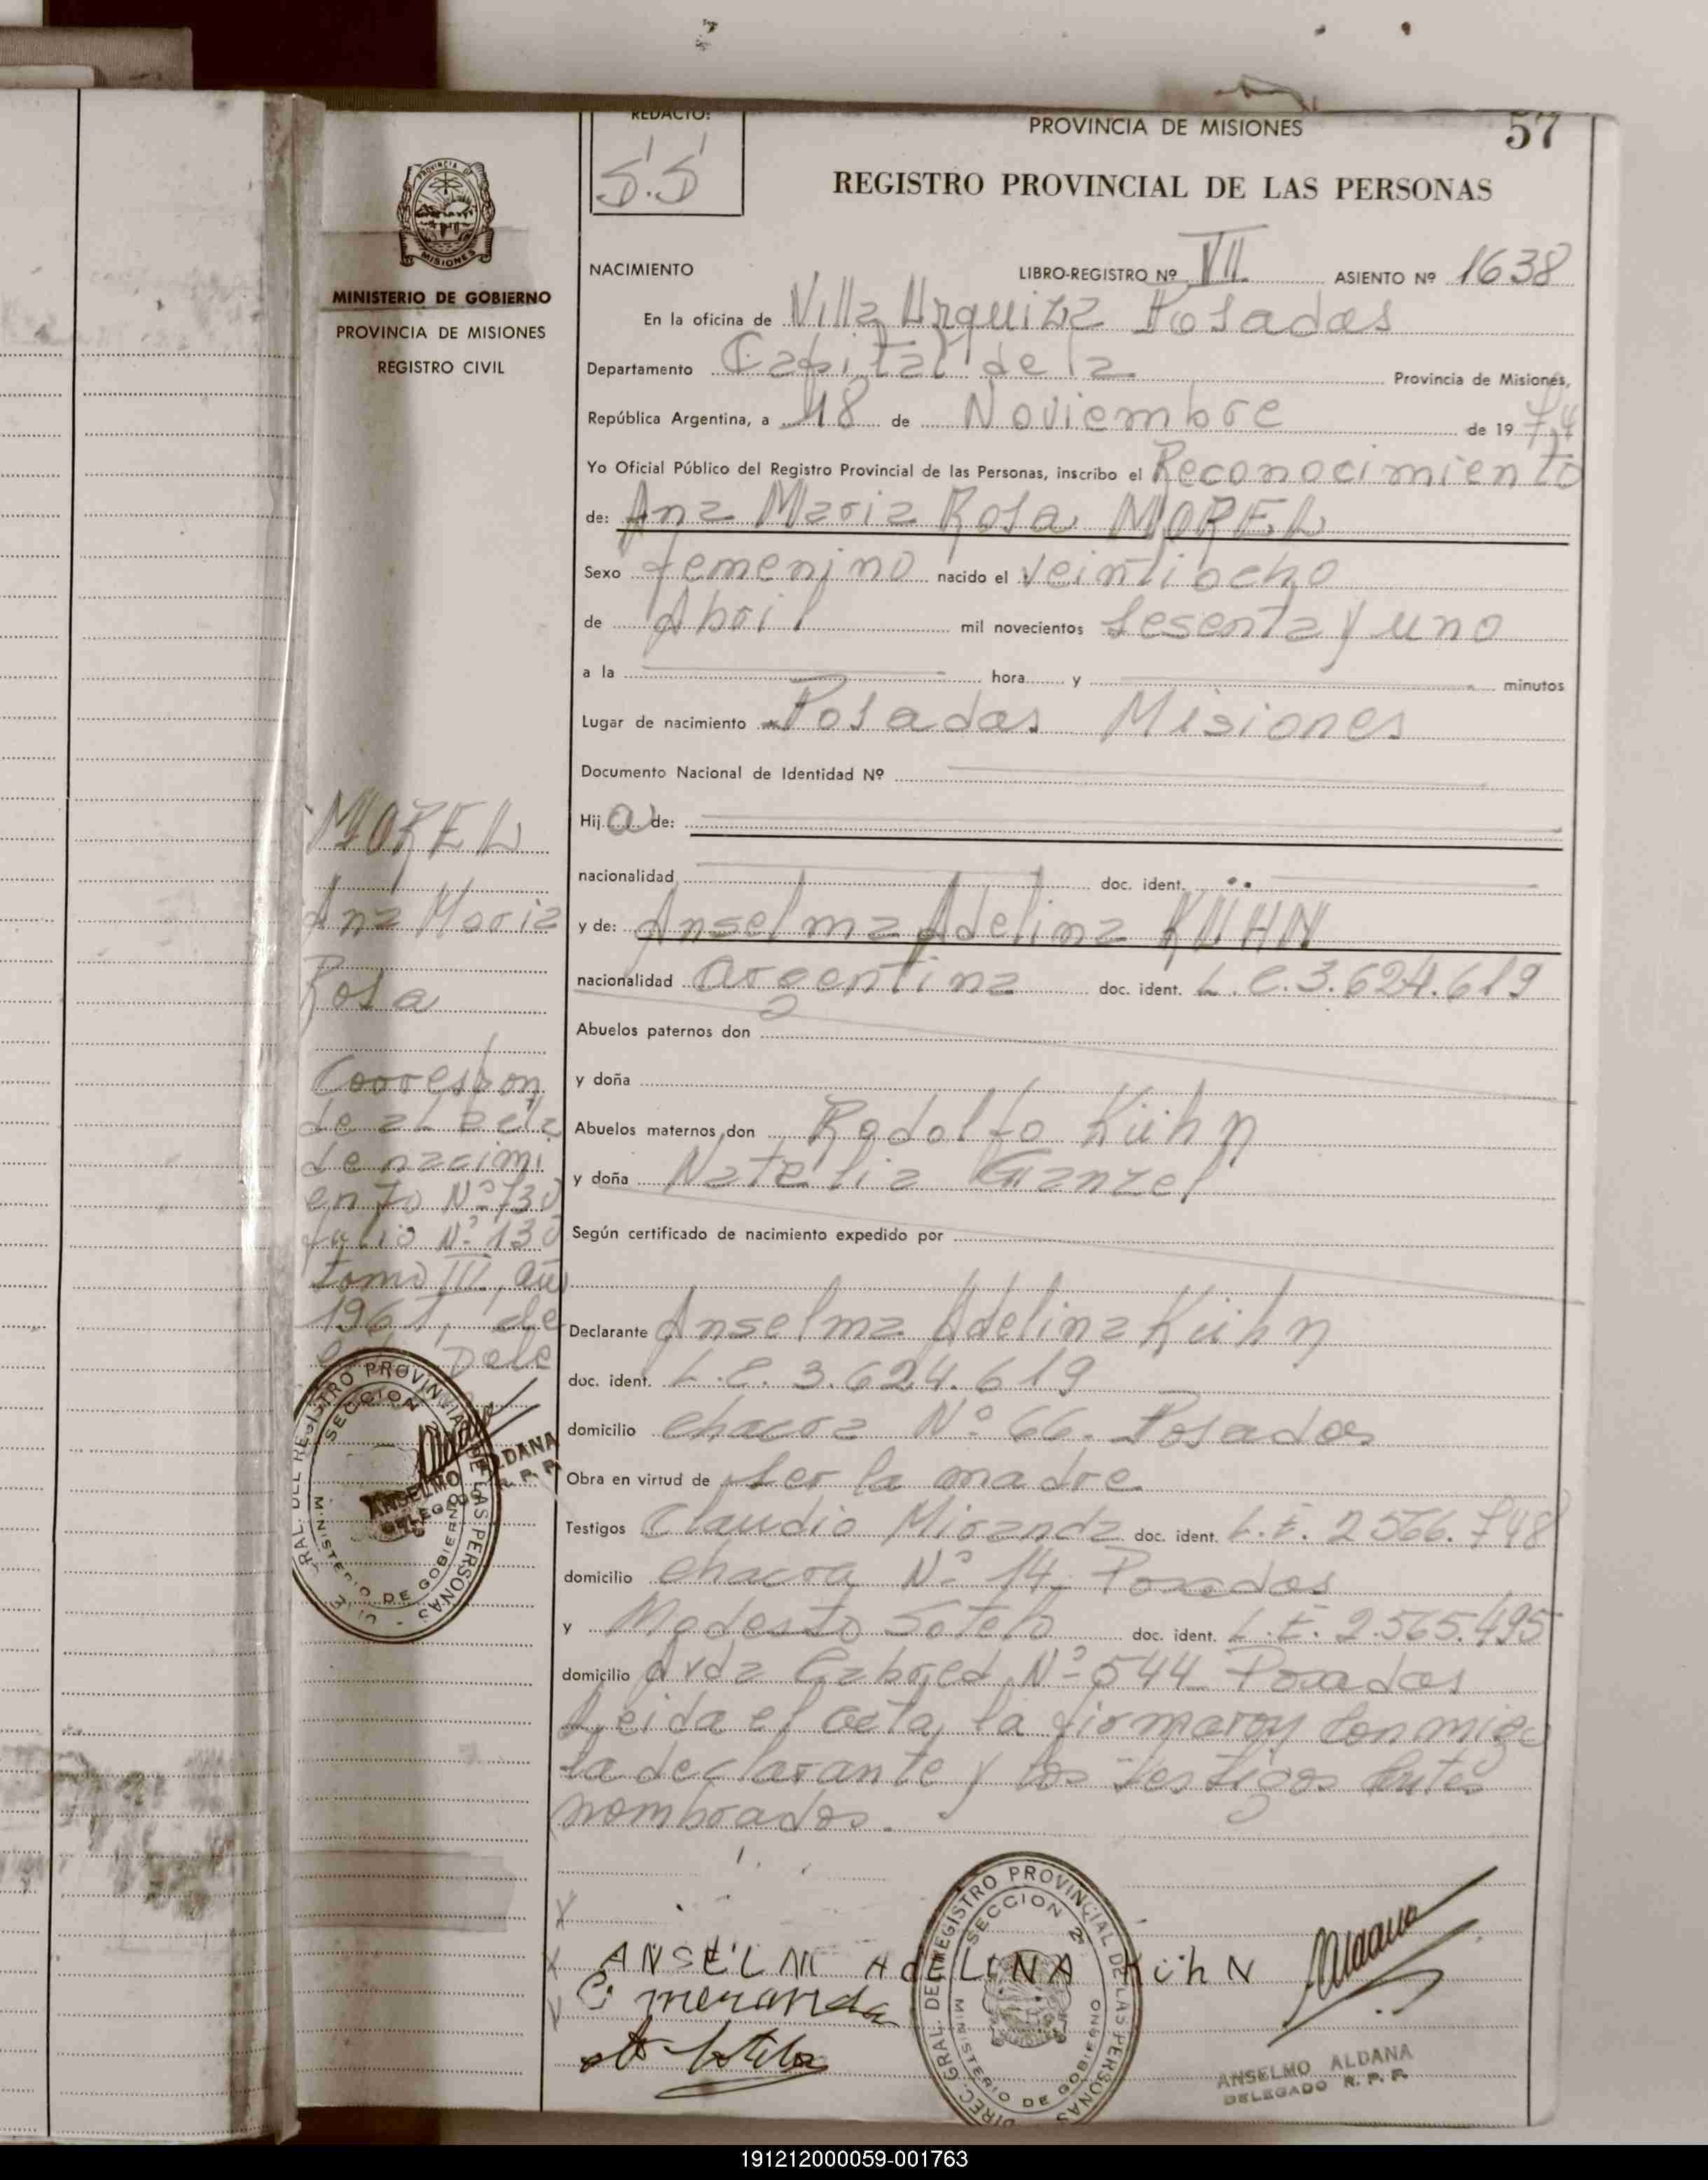 REDACTO:
S.S
PROVINCIA DE MISIONES
57
REGISTRO PROVINCIAL DE LAS PERSONAS
NACIMIENTO LIBRO-REGISTRO Nº VII ASIENTO Nº 1638
En la oficina de Villa Urquiza Posadas
Departamento Capital de la Provincia de Misiones,
República Argentina, a 18 de Noviembre de 1974
Yo Oficial Público del Registro Provincial de las Personas, inscribo el Reconocimiento
de: Ana Maria Rosa MOREL
Sexo femenino nacido el veintiocho
de Abril mil novecientos sesenta y uno
a la hora y minutos
Lugar de nacimiento Posadas Misiones
Documento Nacional de Identidad Nº
Hij a de:
nacionalidad doc. ident.
y de: Anselma Adelina KUHN
nacionalidad argentina doc. ident. L.C. 3.624.619
Abuelos paternos don
y doña
Abuelos maternos don Rodolfo Kühn
y doña Natalia Ganzel
Según certificado de nacimiento expedido por
Declarante Anselma Adelina Kühn
doc. ident. L.C. 3.624.619
domicilio chacra Nº 66. Posadas
Obra en virtud de ser la madre
Testigos Claudio Miranda doc. ident. L.E. 2566.748
domicilio chacra Nº 14. Posadas
y Modesto Sotelo doc. ident. L.E. 2.565.495
domicilio Avda Cabred Nº 544 Posadas
Leida el acta, la firmaron conmigo
la declarante y los testigos ante
nombrados.
ANSELM AdELINA KühN
C meranda
ANSELMO ALDANA
DELEGADO R. P. P.
DIREC. GRAL. DEL REGISTRO PROVINCIAL DE LAS PERSONAS
SECCION 2ª
MINISTERIO DE GOBIERNO
PROVINCIA DE
MISIONES
MINISTERIO DE GOBIERNO
PROVINCIA DE MISIONES
REGISTRO CIVIL
MOREL
Ana Maria
Rosa
Correspon
de al acta
de nacimi
ento Nº 730
folio Nº 130
tomo III, año
1961, de
Dele
GRAL. DEL REGISTRO PROVINCIAL DE LAS PERSONAS
SECCION
MINISTERIO DE GOBIERNO
ANSELMO ALDANA
DELEGADO R. P. P.
191212000059-001763